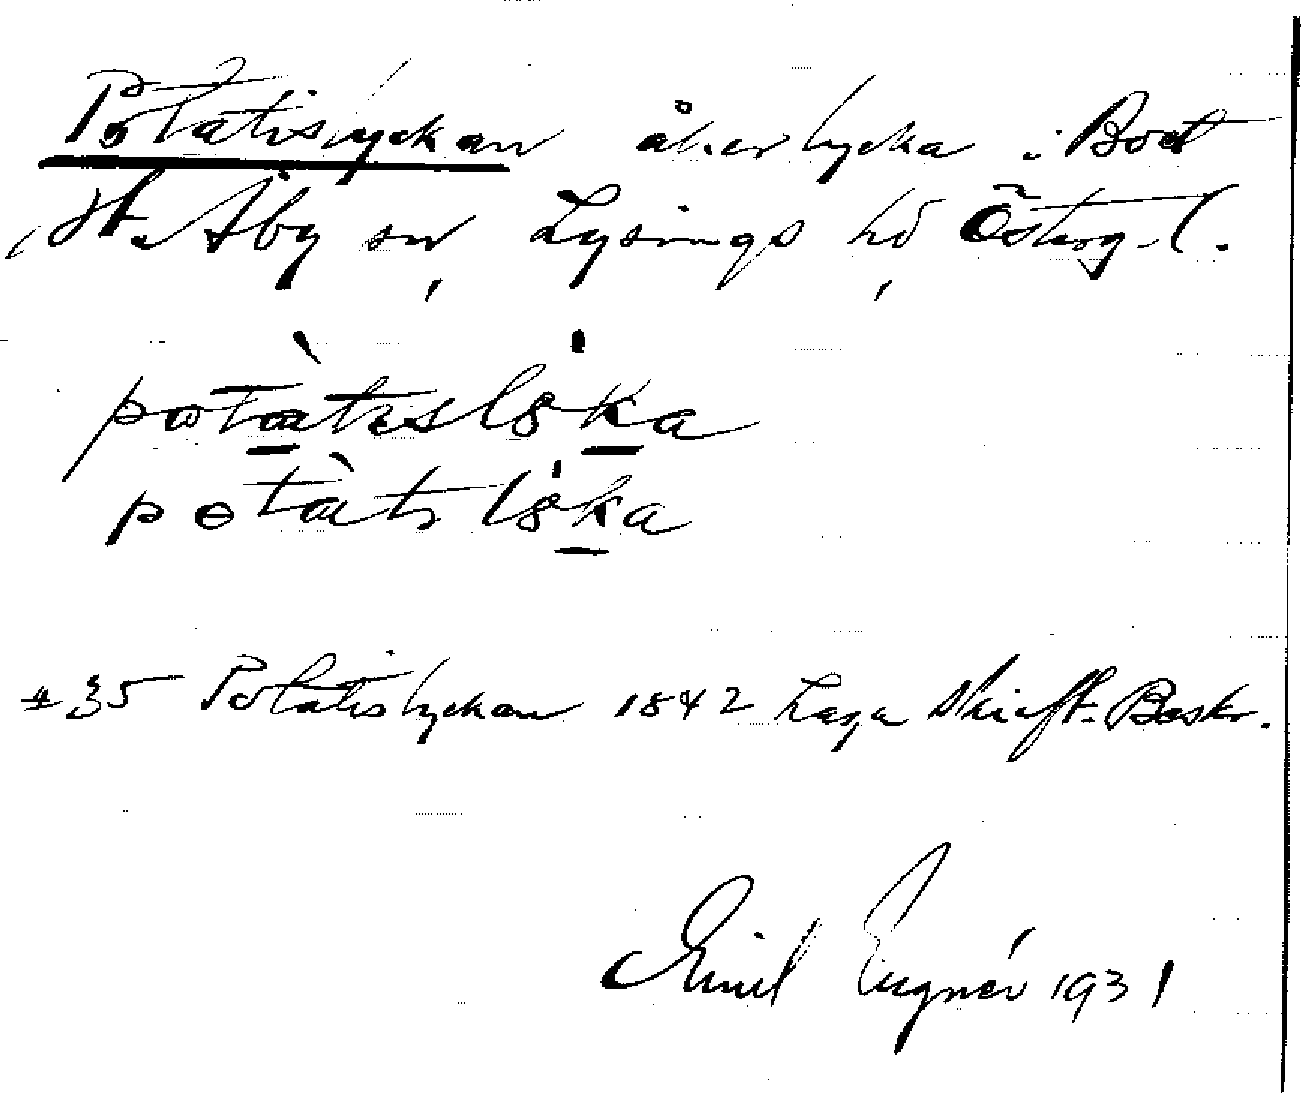 Potatislyckan åkerlycka i Boet
St. Åby sn, Lysings hd, Österg. l.
potàtislyka
potàtslyka
± 35 Potatislyckan 1842 Laga Skift. Beskr.
Emil Engnér 1931